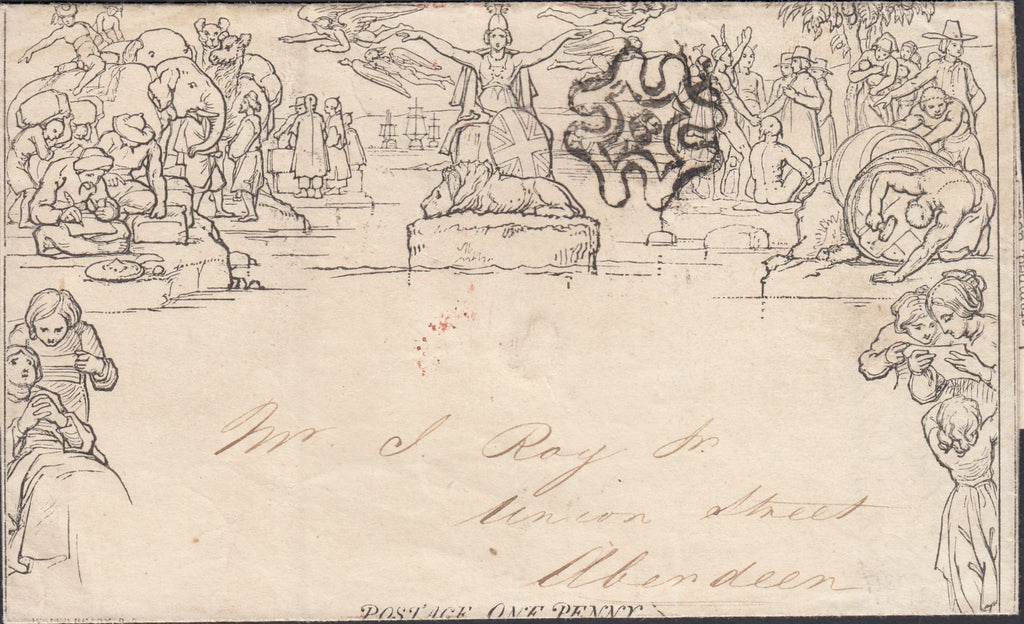 Mr. J. Roy Jr.
Union Street
Aberdeen
POSTAGE ONE PENNY.